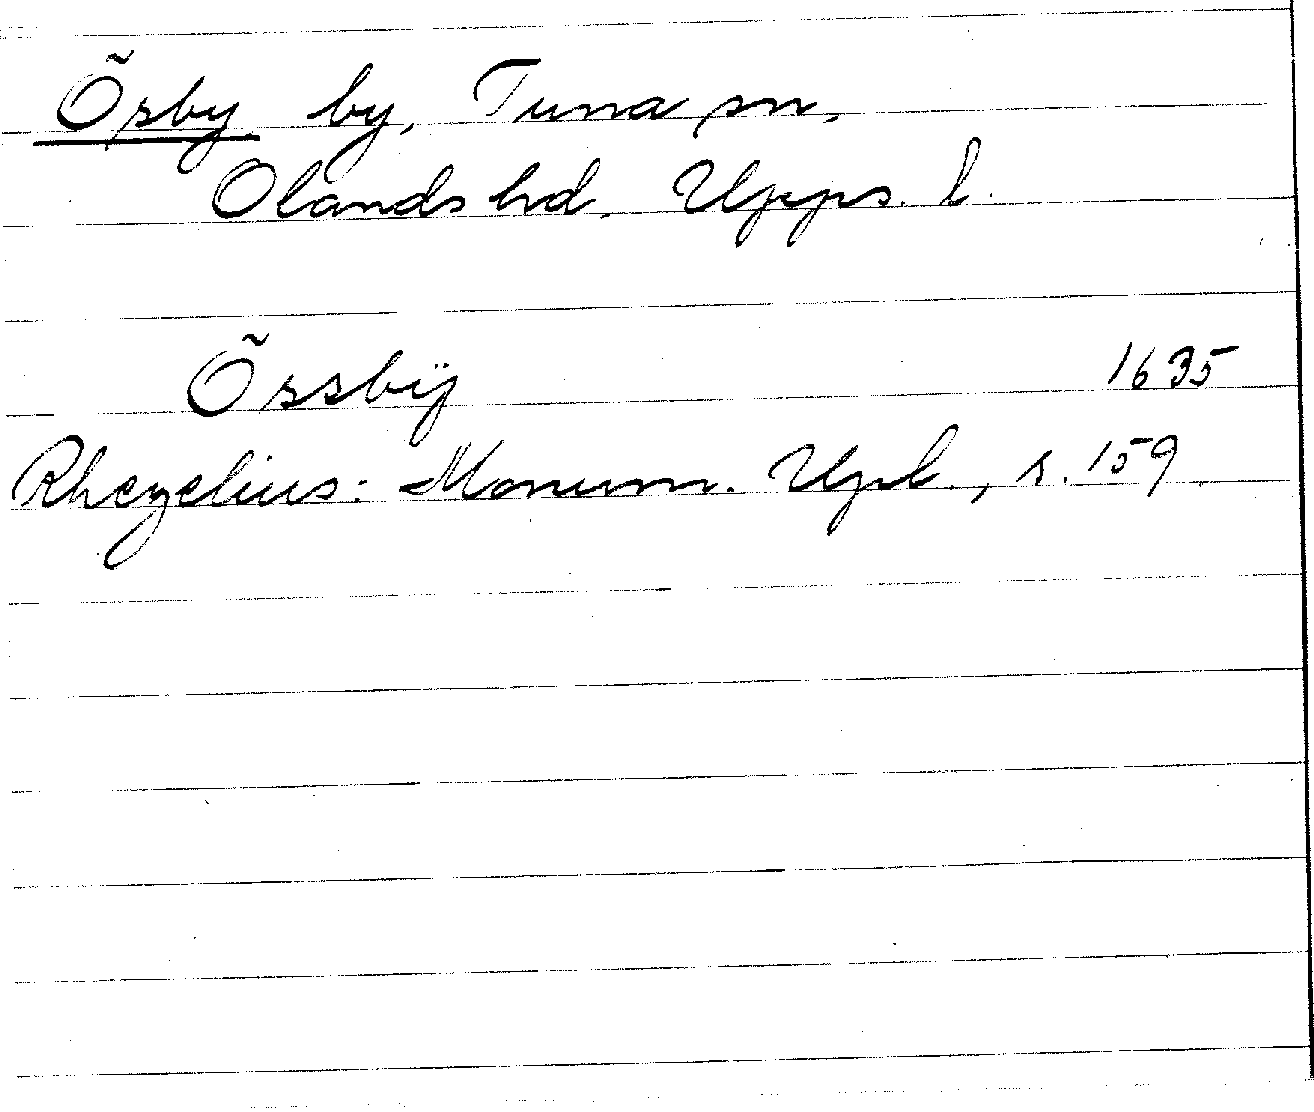 Õrby by, Tuna sn,
Olands hd. Upps. l.
Õrssbÿ 1635
Rhezelius: Monum. Upl., s. 159.